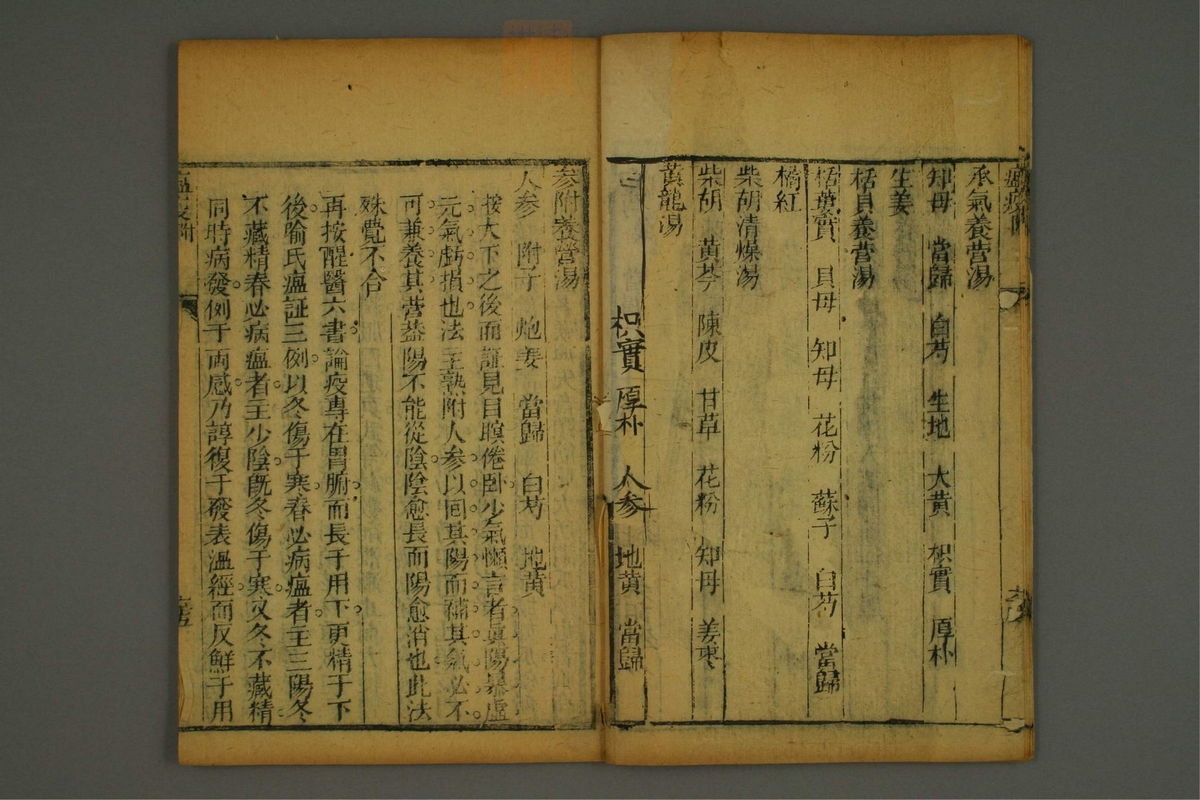 承氣養營湯
知母 當歸 白芍 生地 大黃 枳實 厚朴
生姜
栝貝養營湯
栝蔞實 貝母 知母 花粉 蘇子 白芍 當歸
橘紅
柴胡清燥湯
柴胡 黃芩 陳皮 甘草 花粉 知母 姜棗
黃龍湯
枳實 厚朴 人參 地黃 當歸
參附養營湯
人參 附子 炮姜 當歸 白芍 地黃
按大下之後而証見目瞑倦卧少氣懶言者真陽暴虛
元氣虧損也法主熟附人參以囘其陽而補其氣必不
可兼養其營葢陽不能從陰陰愈長而陽愈消也此法
殊覺不合
再按醒醫六書論疫專在胃腑而長于用下更精于下
後喻氏瘟証三例以冬傷于寒春必病瘟者主三陽冬
不藏精春必病瘟者主少陰旣冬傷于寒又冬不藏精
同時病發例于両感乃諄復于發表溫經而反鮮于用